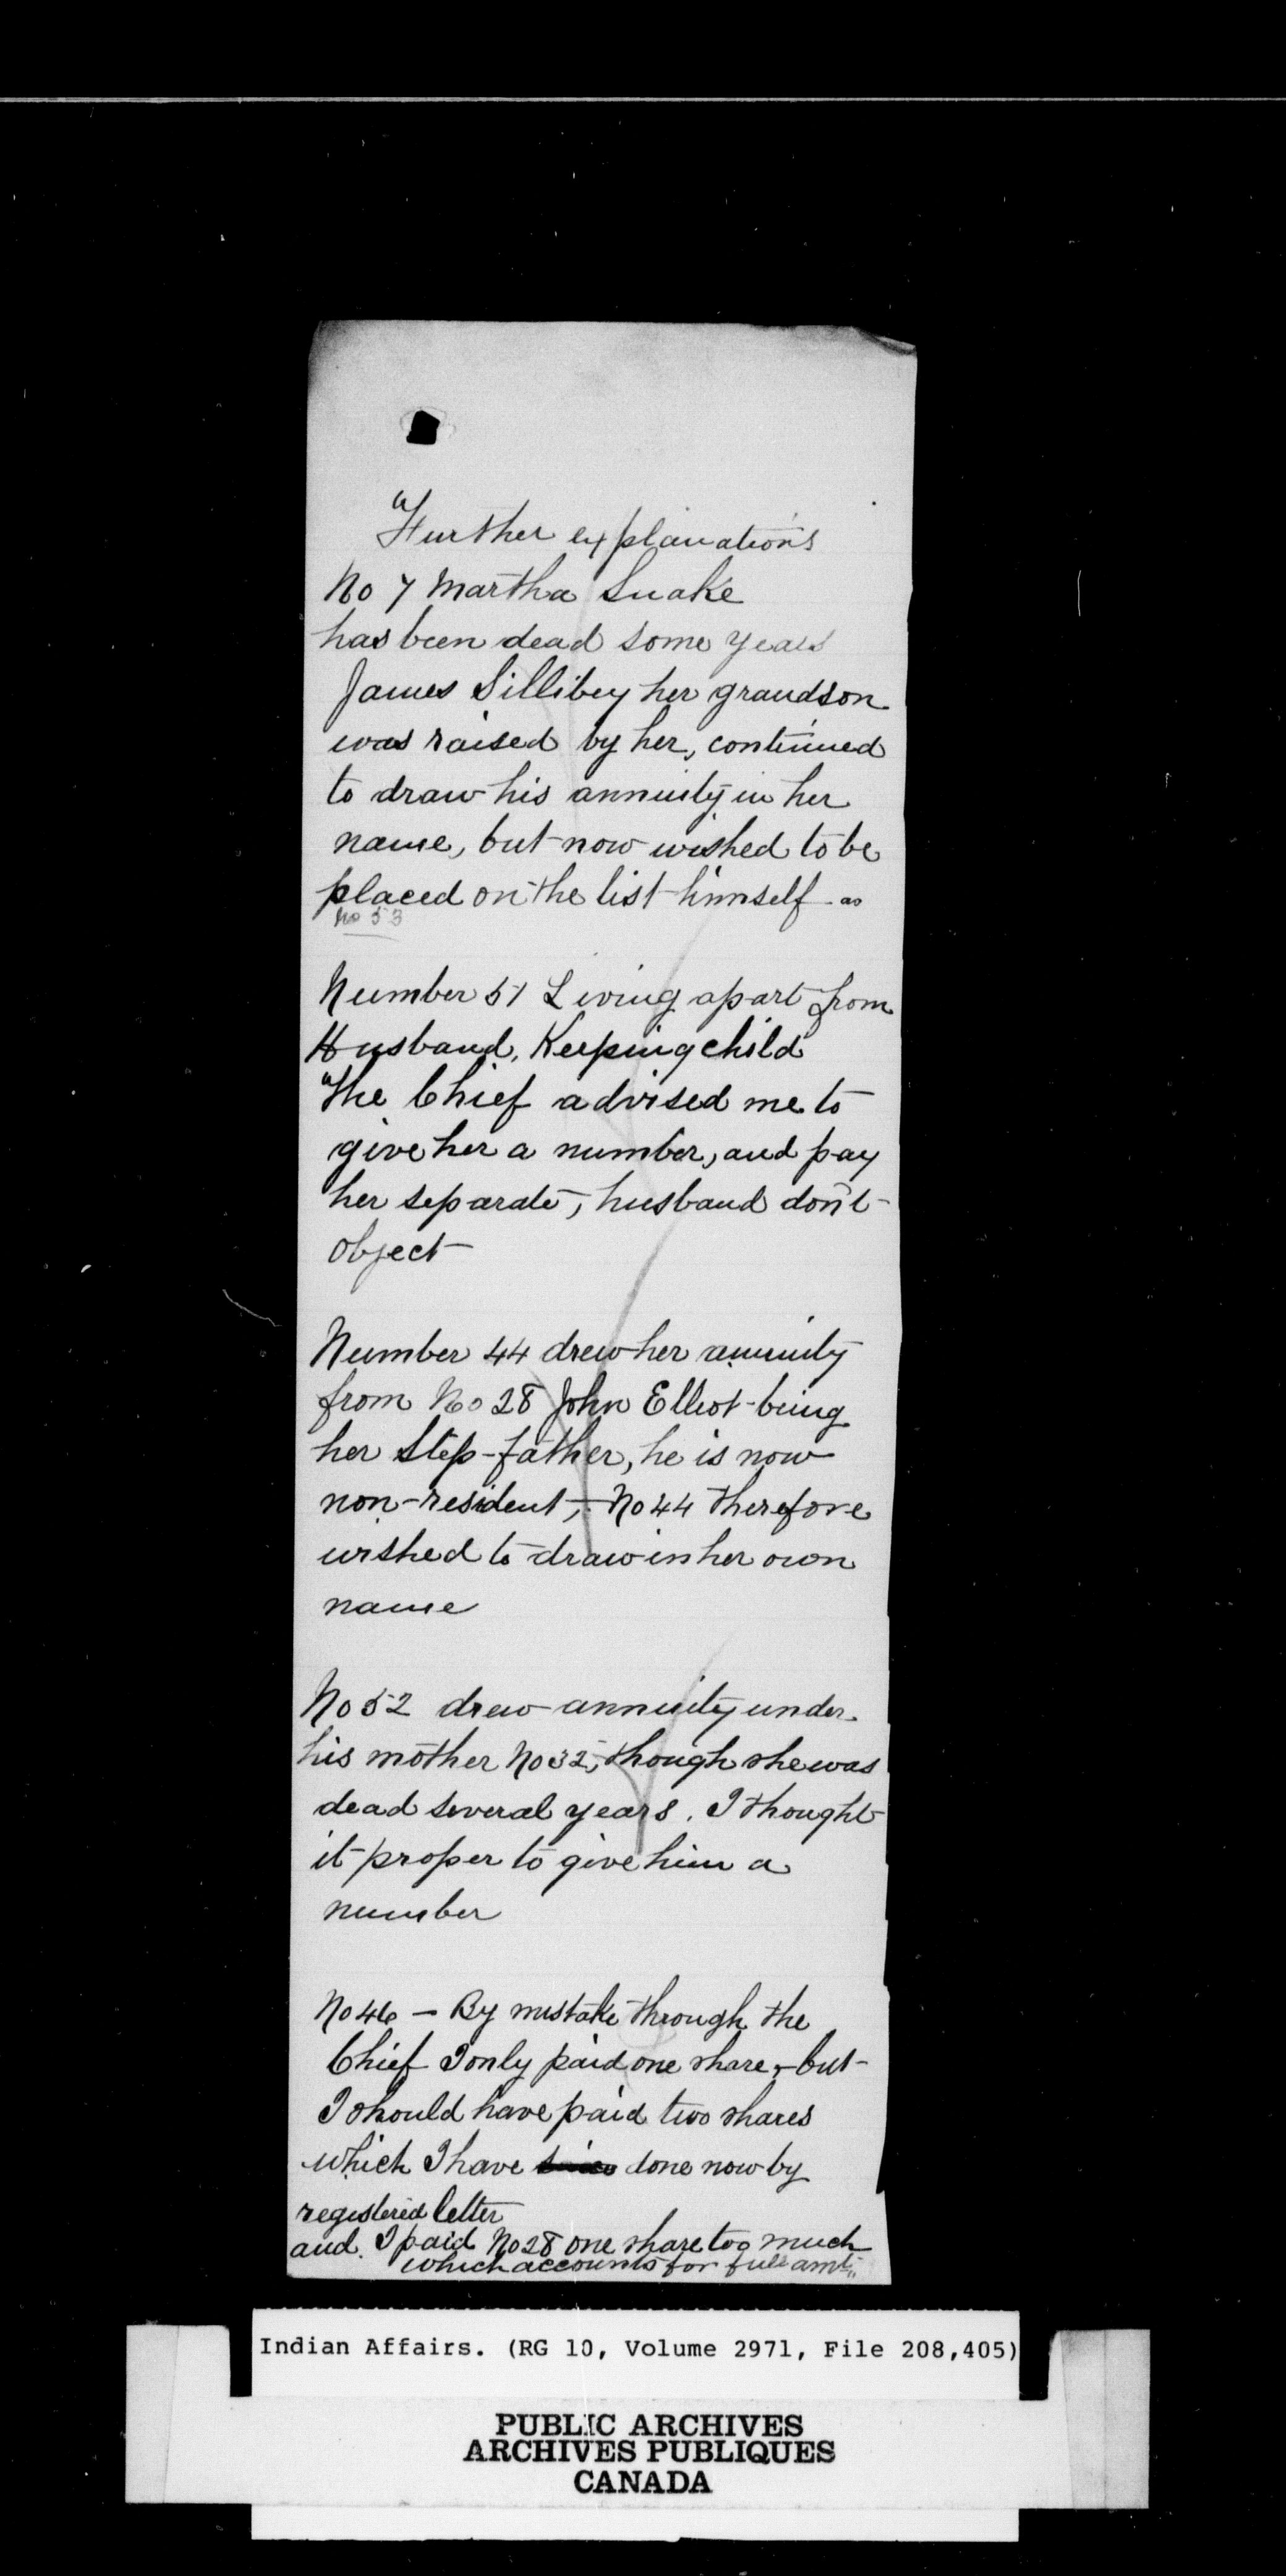 "Further explanations
No 7 Martha Snake
has been dead some years
James Sillibey her grandson
was raised by her, continued
to draw his annuity in her
name, but now wished to be
placed on the list himself - as
No 53
Number 51 Living apart from
Husband, Keeping child
"The Chief advised me to
give her a number, and pay
her separate, husband don't
object
Number 44 drew her annuity
from No 28 John Elliot being
her Step-father, he is now
non-resident, - No 44 therefore
wished to draw in her own
name
No 52 drew annuity under
his mother No 32, though she was
dead several years. I thought
it proper to give him a
number
No 46 — By mistake through the
Chief I only paid one share, - but
I should have paid two shares
which I have done now by
registered letter
and I paid No 28 one share too much
which accounts for full amt"
Indian Affairs. (RG 10, Volume 2971, File 208,405)
PUBLIC ARCHIVES
ARCHIVES PUBLIQUES
CANADA